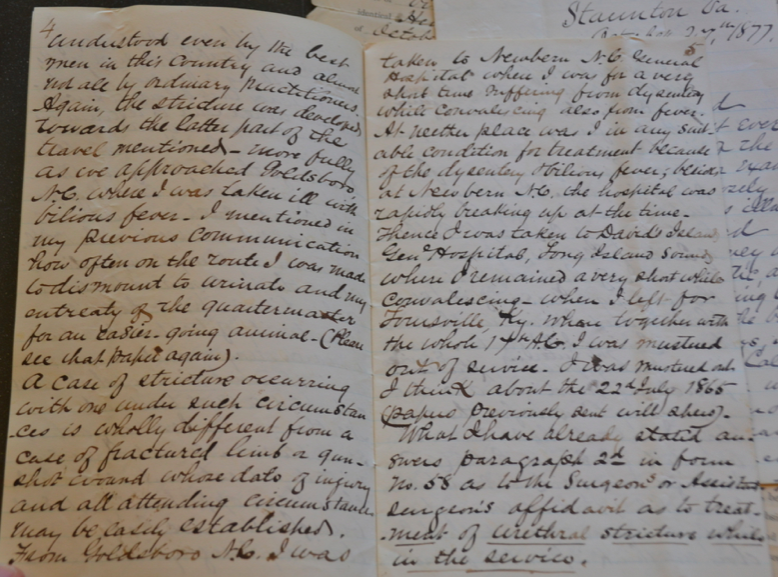 4
understood even by the best
men in this Country and almost
not all by ordinary Practitioners.
Again, the stricture was developed
towards the latter part of the
travel mentioned - more fully
as we approached Goldsboro
N.C. where I was taken ill with
bilious fever - I mentioned in
my previous communication
how often on the route I was made
to dismount to urinate and my
entreaty of the quartermaster
for an easier-going animal - (Please
see that paper again).
A case of stricture occurring
with one under such circumstan
ces is wholly different from a
case of fractured limb or gun-
shot wound whose date of injury
and all attending circumstances
may be easily established.
From Goldsboro N.C. I was
5
taken to Newbern N.C. General
Hospital where I was for a very
short time suffering from dysentery
while convalescing also from fever.
At neither place was I in any suit
able condition for treatment because
of the dysentery & bilious fever; besides
at Newbern N.C. the hospital was
rapidly breaking up at the time.
Thence I was taken to David's Island
Genl Hospital, Long Island Sound
where I remained a very short while
Convalescing - when I left for
Louisville, Ky. where together with
the whole I was mustered
out of service. I was mustered out
I think about the 22d July 1865
(papers previously sent will show).
What I have already stated an-
swers paragraph 2d in form
No. 58 as to the Surgeon's or Assistant
surgeon's affidavit as to treat-
ment of urethral stricture while
in the service.
Staunton Va.
27th 1877